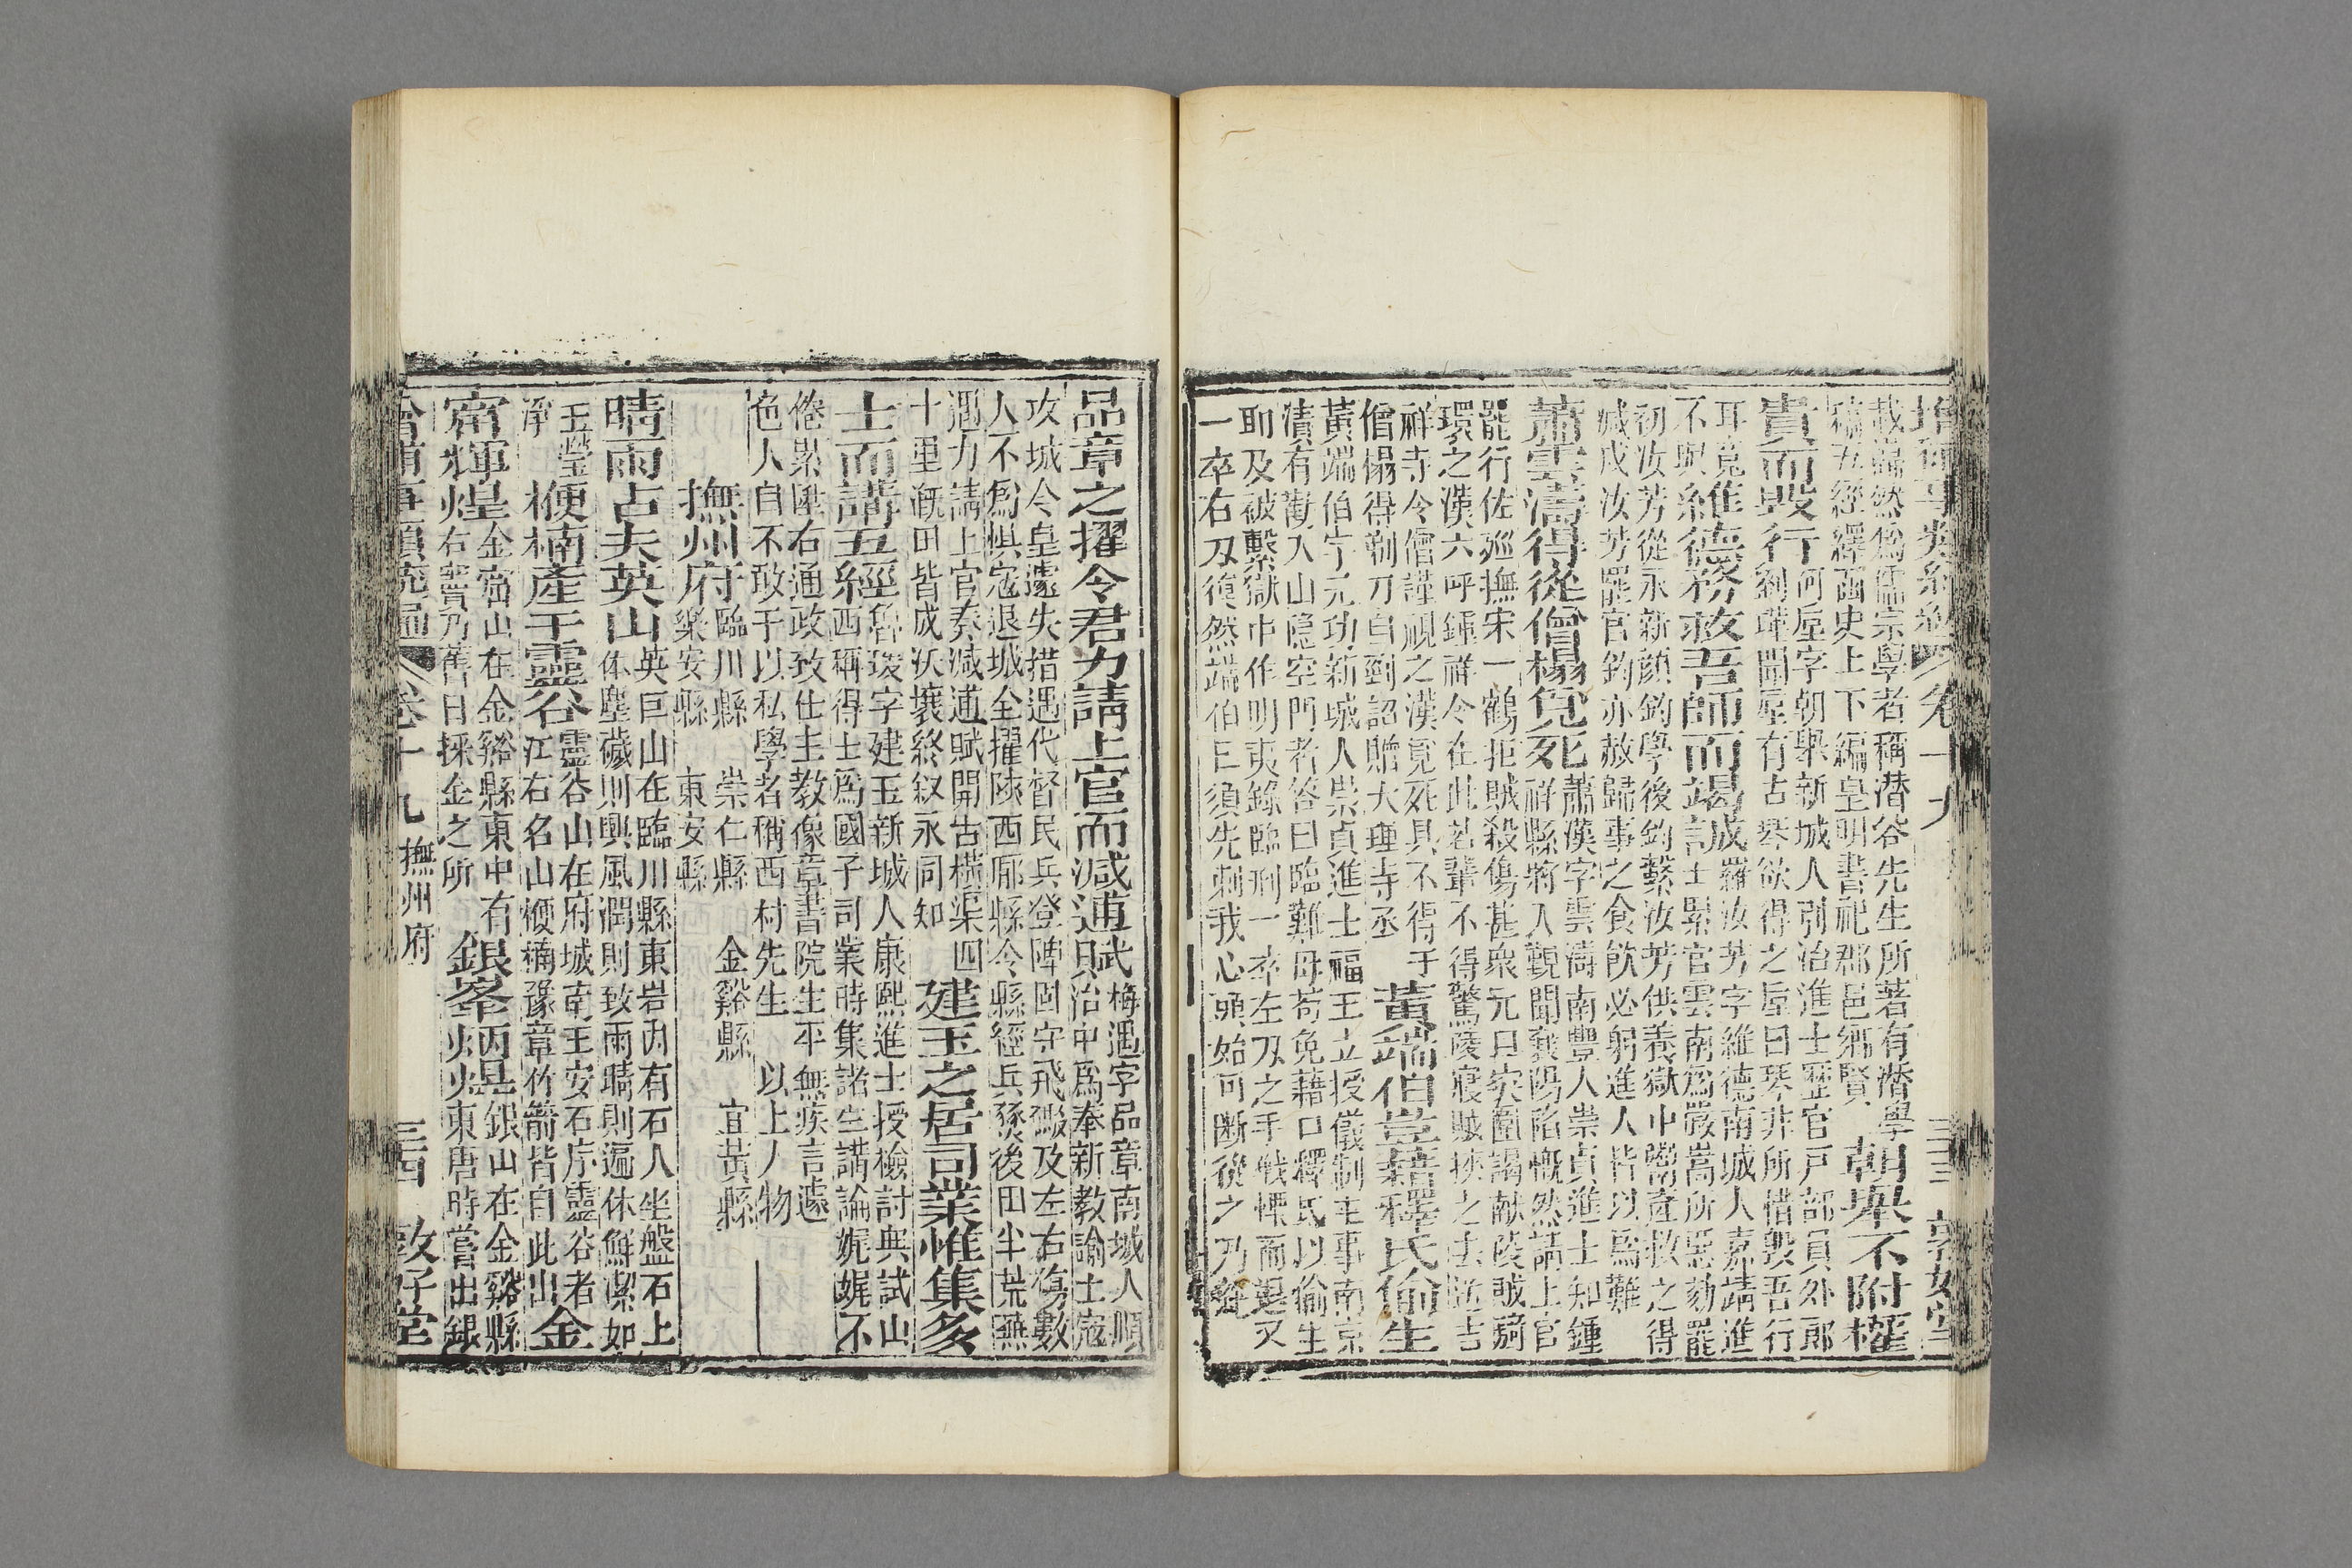 增補事類統編 卷十九 三三 敦好堂
載巋然爲儒宗學者稱潛谷先生所著有潛學
稿五經繹函史上下編皇明書祀郡邑鄉賢
朝舉不附權
貴而毀行
何垕字朝舉新城人列治進士歷官戶部員外郎
劉瑾聞垕有古琴欲得之垕曰琴非所惜毀吾行
耳竟
不與
維德務救吾師而竭誠
羅汝芳字維德南城人嘉靖進
士累官雲南爲嚴嵩所惡劾罷
初汝芳從永新顏鈞學後鈞繫汝芳供養獄中鬻產救之得
減戍汝芳罷官鈞亦赦歸事之食飲必躬進人皆以爲難
蕭雲濤得從僧榻免死
蕭漢字雲濤南豐人崇貞進士知鍾
祥縣將入覲聞襄陽陷慨然請上官
罷行佐廵撫宋一鶴拒賊殺傷甚衆元旦突圍謁献陵賊騎
環之漢六呼鍾祥令在此若輩不得驚陵寢賊挾之去送吉
祥寺令僧謹視之漢覓死具不得于
僧榻得剃刀自剄詔贈大理寺丞
黃端伯豈藉釋氏偷生
黃端伯字元功新城人崇貞進士福王立授儀制主事南京
潰有勸入山隱空門者答曰臨難毋苟免藉口釋氏以偷生
耶及被繫獄中作明夷錄臨刑一卒左刄之手戰慄而退又
一卒右刄復然端伯曰須先刺我心頭始可斷從之乃絕
品章之擢令君力請上官而減逋賦
梅遇字品章南城人順
治中爲奉新教諭土寇
攻城令皇遽失措遇代督民兵登陴固守飛礮及左右傷數
人不爲惧寇退城全擢陝西郿縣令縣經兵燹後田半荒蕪
遇力請上官奏減逋賦開古橫渠四
十里漑田皆成沃壤終叙永同知
建玉之居司業惟集多
士而講五經
魯瑗字建玉新城人康熙進士授檢討典試山
西稱得士爲國子司業時集諸生講論娓娓不
倦累陞右通政致仕主教像章書院生平無疾言遽
色人自不敢干以私學者稱西村先生 以上人物
撫州府
臨川縣 崇仁縣 金谿縣 宜黃縣
樂安縣 東安縣
晴雨占夫英山
英巨山在臨川縣東岩內有石人坐盤石上
体塵穢則興風潤則致雨晴則遍休鮮潔如
玉瑩
淨
楩楠產于靈谷
靈谷山在府城南王安石序靈谷者
江右名山楩楠豫章竹箭皆自此山
金
窋輝煌
金窋山在金谿縣東中有
右竇乃舊日採金之所
銀峯炳燿
銀山在金谿縣
東唐時嘗出銀
增補事類統編 卷十九 撫州府 三四 敦好堂